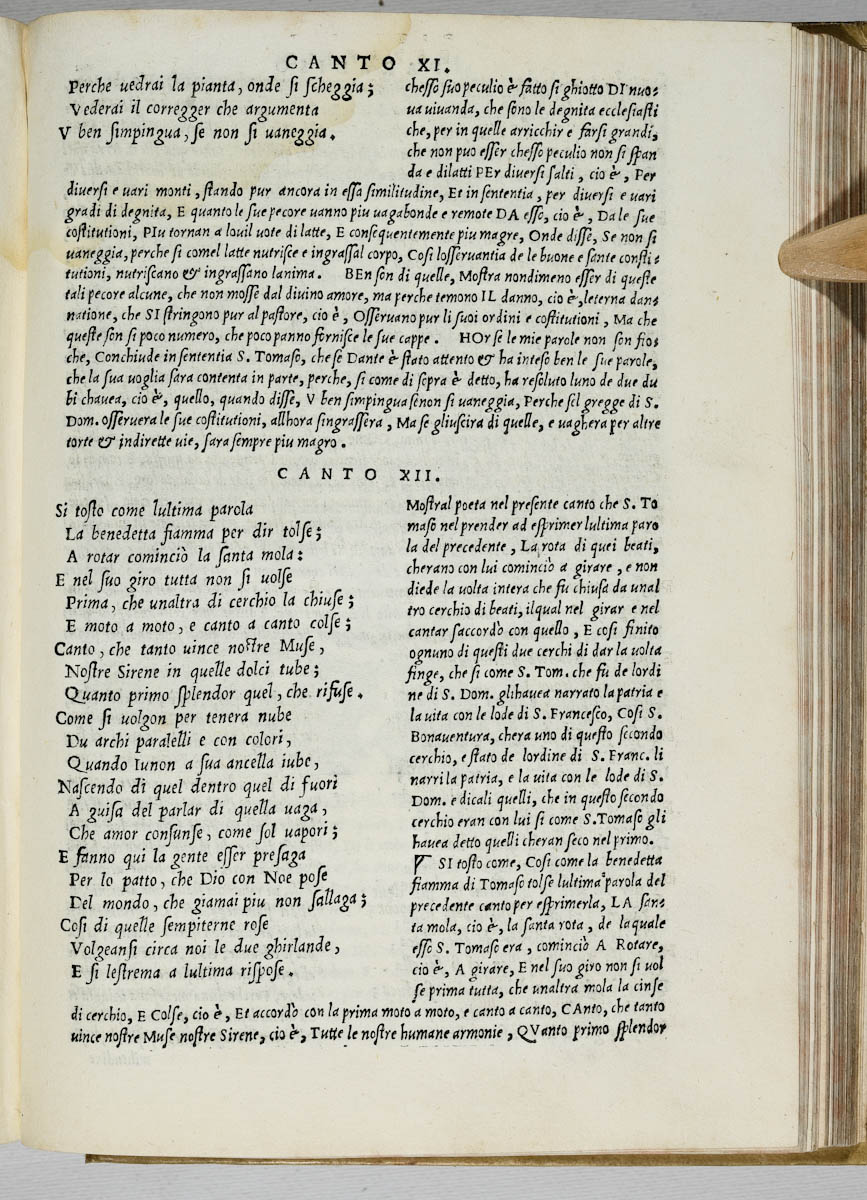 CANTO XI.
Perche uedrai la pianta, onde si scheggia;
Vederai il corregger che argumenta
V ben simpingua, se non si uaneggia.
chesso suo peculio è fatto si ghiotto DI nuo-
ua uiuanda, che sono le degnita ecclesiasti
che, per in quelle arricchir e farsi grandi,
che non puo esser chesso peculio non si span
da e dilatti PEr diuersi salti, cio è, Per
diuersi e uari monti, stando pur ancora in essa similitudine, Et in sententia, per diuersi e uari
gradi di degnita, E quanto le sue pecore uanno piu uagabonde e remote DA esso, cio è, Da le sue
costitutioni, PIu tornan a louil uote di latte, E consequentemente piu magre, Onde disse, Se non si
uaneggia, perche si comel latte nutrisce e ingrassal corpo, Cosi losseruantia de le buone e sante consti-
tutioni, nutriscano & ingrassano lanima. BEn son di quelle, Mostra nondimeno esser di queste
tali pecore alcune, che non mosse dal diuino amore, ma perche temono IL danno, cio è, leterna dan-
natione, che SI stringono pur al pastore, cio è, Osseruano pur li suoi ordini e costitutioni, Ma che
queste son si poco numero, che poco panno fornisce le sue cappe. HOr se le mie parole non son fio-
che, Conchiude in sententia S. Tomaso, che se Dante è stato attento & ha inteso ben le sue parole,
che la sua uoglia sara contenta in parte, perche, si come di sopra è detto, ha resoluto luno de due du
bi chauea, cio è, quello, quando disse, V ben simpingua senon si uaneggia, Perche sel gregge di S.
Dom. osseruera le sue costitutioni, allhora singrassera, Ma se gliuscira di quelle, e uaghera per altre
torte & indirette uie, sara sempre piu magro.
CANTO XII.
Si tosto come lultima parola
La benedetta fiamma per dir tolse;
A rotar cominciò la santa mola:
E nel suo giro tutta non si uolse
Prima, che unaltra di cerchio la chiuse;
E moto a moto, e canto a canto colse;
Canto, che tanto uince nostre Muse,
Nostre Sirene in quelle dolci tube;
Quanto primo splendor quel, che rifuse.
Come si uolgon per tenera nube
Du archi paralelli e con colori,
Quando Iunon a sua ancella iube,
Nascendo di quel dentro quel di fuori
A guisa del parlar di quella uaga,
Che amor consunse, come sol uapori;
E fanno qui la gente esser presaga
Per lo patto, che Dio con Noe pose
Del mondo, che giamai piu non sallaga;
Cosi di quelle sempiterne rose
Volgeansi circa noi le due ghirlande,
E si lestrema a lultima rispose.
Mostral poeta nel presente canto che S. To
maso nel prender ad esprimer lultima paro
la del precedente, La rota di quei beati,
cherano con lui cominciò a girare, e non
diede la uolta intera che fu chiusa da unal
tro cerchio di beati, ilqual nel girar e nel
cantar saccordò con quello, E cosi finito
ognuno di questi due cerchi di dar la uolta
finge, che si come S. Tom. che fu de lordi
ne di S. Dom. glihauea narrato la patria e
la uita con le lode di S. Francesco, Cosi S.
Bonauentura, chera uno di questo secondo
cerchio, e stato de lordine di S. Franc. li
narri la patria, e la uita con le lode di S.
Dom. e dicali quelli, che in questo secondo
cerchio eran con lui si come S. Tomaso gli
hauea detto quelli cheran seco nel primo.
SI tosto come, Cosi come la benedetta
fiamma di Tomaso tolse lultima parola del
precedente canto per esprimerla, LA san-
ta mola, cio è, la santa rota, de la quale
esso S. Tomaso era, cominciò A Rotare,
cio è, A girare, E nel suo giro non si uol
se prima tutta, che unaltra mola la cinse
di cerchio, E Colse, cio è, Et accordò con la prima moto a moto, e canto a canto, CAnto, che tanto
uince nostre Muse nostre Sirene, cio è, Tutte le nostre humane armonie, QVanto primo splendor